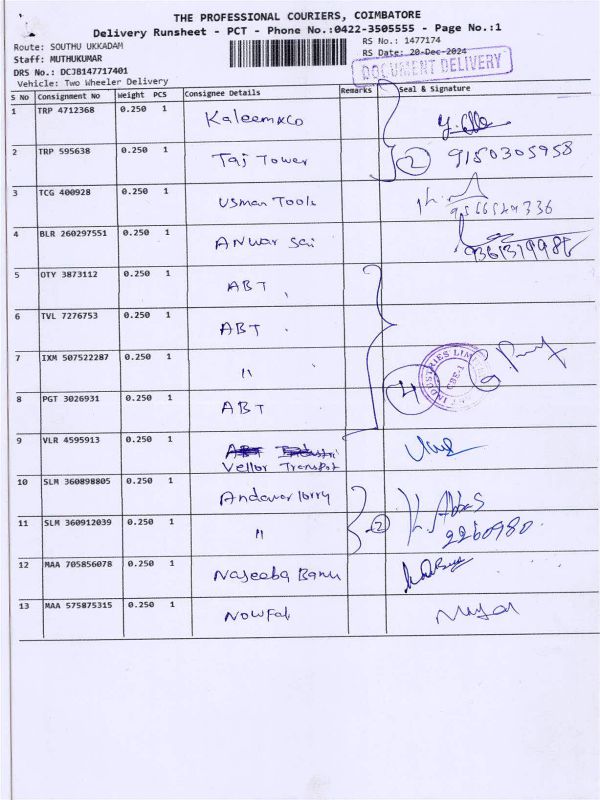 THE PROFESSIONAL COURIERS, COIMBATORE
Delivery Runsheet - PCT - Phone No.:0422-3505555 - Page No.:1
Route: SOUTHU UKKADAM
RS No.: 1477174
Staff: MUTHUKUMAR
RS Date: 20-Dec-2024
DRS No.: DCJB147717401
DOCUMENT DELIVERY
Vehicle: Two Wheeler Delivery
S No Consignment No Weight PCS Consignee Details Remarks Seal & Signature
1 TRP 4712368 0.250 1 Kaleem&Co
2 TRP 595638 0.250 1 Taj Tower 2 9150305958
3 TCG 400928 0.250 1 Usman Tools
4 BLR 260297551 0.250 1 Anwar Sai
5 OTY 3873112 0.250 1 ABT
6 TVL 7276753 0.250 1 ABT
7 IXM 507522287 0.250 1 "
INDUSTRIES CBE-1
8 PGT 3026931 0.250 1 ABT 4
9 VLR 4595913 0.250 1
Vellor Transpot
10 SLM 360898805 0.250 1 Andavar lorry K. Abbas
11 SLM 360912039 0.250 1 " 2 2260980
12 MAA 705856078 0.250 1 Naseeba Banu
13 MAA 575875315 0.250 1 Nowfal